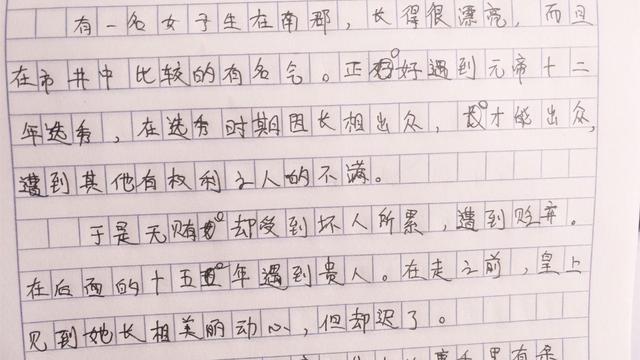 有一名女子生在南郡，长得很漂亮，而且
在市井中比较的有名气。正好遇到元帝十二
年选秀，在选秀时期因长相出众，才能出众，
遭到其他有权利之人的不满。
于是无却受到坏人所累，遭到贬弃。
在后面的十五年遇到贵人。在走之前，皇上
见到她长相美丽动心，但却迟了。